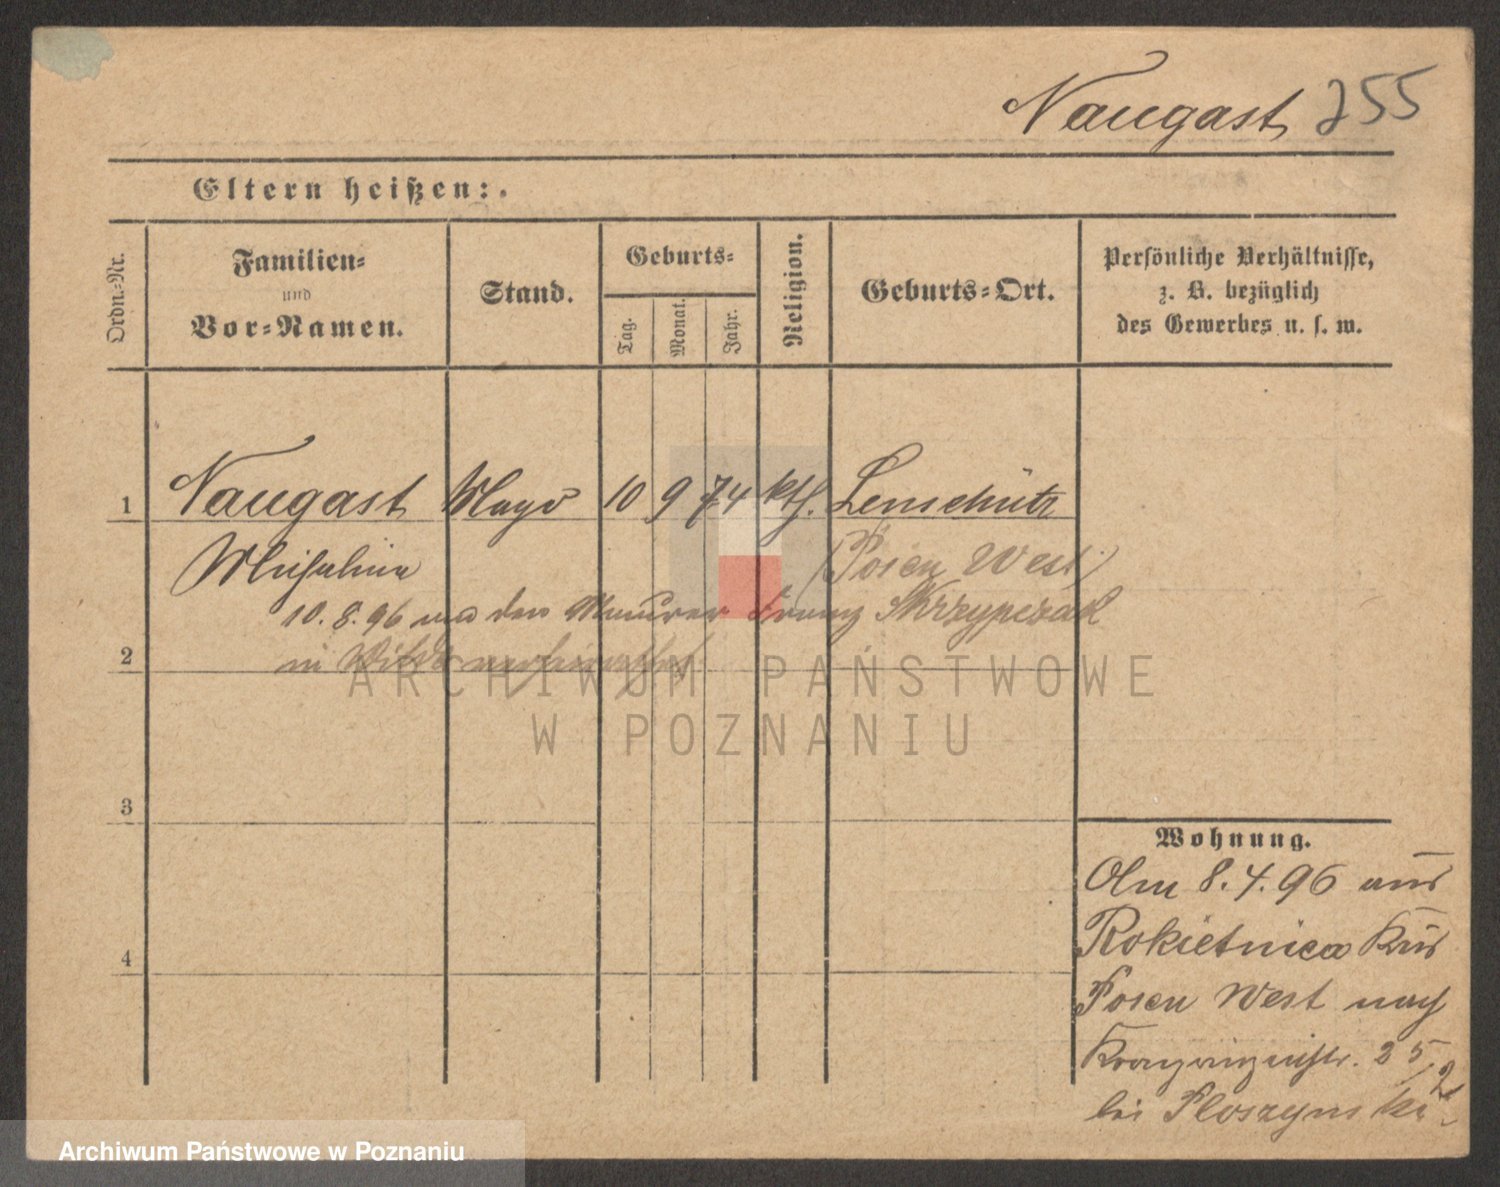 Naugast 255
Eltern heißen:
Ordn.-Nr.
Familien-
und
Vor-Namen.
Stand.
Geburts-
Tag.
Monat.
Jahr.
Religion.
Geburts-Ort.
Persönliche Verhältnisse,
z. B. bezüglich
des Gewerbes u. s. w.
1 Naugast Magd 10 9 74 kth. Lenschütz
(Posen West)
10.8.96 den Maurer Franz Skrzypczak
2 in Wilda verheirathet
3
4
Wohnung.
Am 8.4.96 aus
Rokietnica Kreis
Posen West nach
Kronprinzenstr. 25
bei Ploszynski
ARCHIWUM PAŃSTWOWE
W POZNANIU
Archiwum Państwowe w Poznaniu